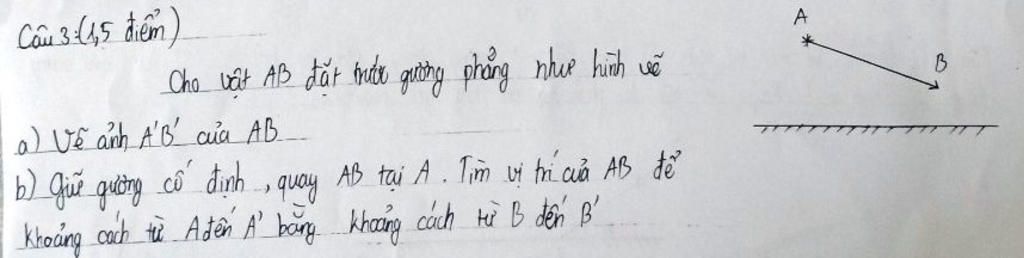 Câu 3:(1,5 điểm)
Cho vật AB đặt trước gương phẳng như hình vẽ
a) Vẽ ảnh A'B' của AB
b) Giữ gương cố định, quay AB tại A. Tìm vị trí của AB để
khoảng cách từ A đến A' bằng khoảng cách từ B đến B'
A
B